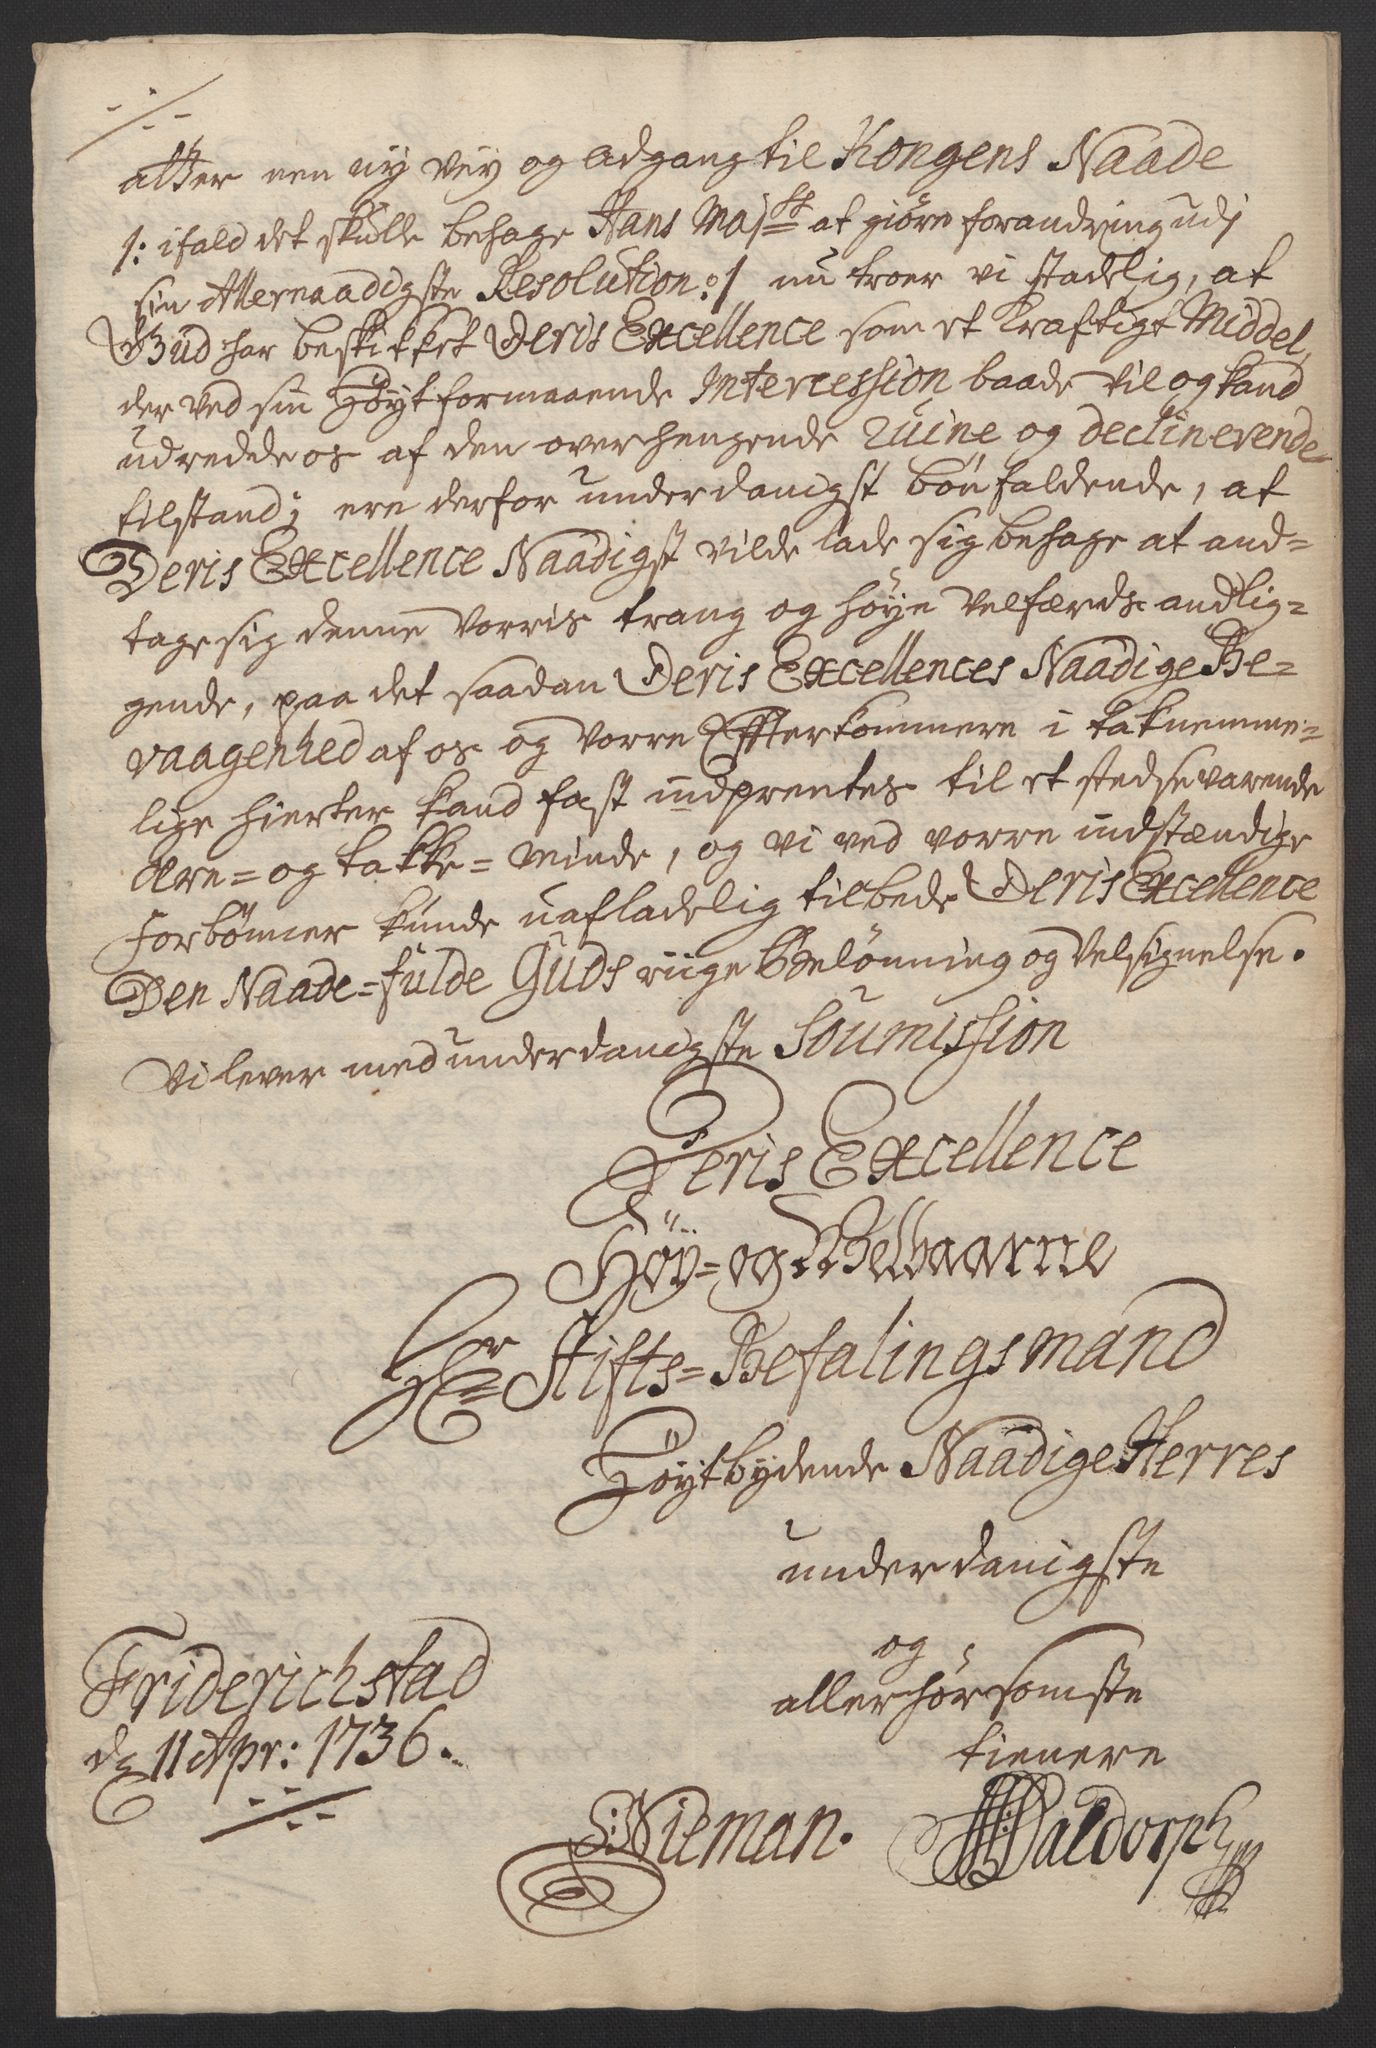 atter een ny vey og adgang til Kongens Naade
/: ifald det skulle behage Hans Majts at giöre forandring udj
sin Allernaadigste Resolution :/ nu troer vi stadelig, at
Gud har beskikket Deris Excellence som et kraftigt Middel,
der ved sin Höytformaaende Intercession baade vil og kand
udredde os af den overhengende ruine og declinerende
tilstand; ere derfor underdanigst bönfaldende, at
Deris Excellence Naadigst vilde lade sig behage at and=
tage sig denne vorris trang og höye Velfærds andlig=
gende, paa det saadan Deris Excellences Naadige Be=
vaagenhed af os og vorre Effterkommere i taknemme=
lige hierter kand fast indprentes til et stedsevarende
ære= og takke= minde, og vi ved vorre indstændige
Forbönner kunde uafladelig tilbede Deris Excellence
Den Naade=fulde Guds riige Belönning og Velsignelse.
Vi lever med underdanigste Soumission
Deris Excellence
Höy= og Velbaarne
Hr Stifts=Befalingsmand
Höytbydende Naadige Herres
underdanigste
og
allerhörsomste
tienere
Friderichstad
d. 11 Apr: 1736.
Nieman. Waldorph